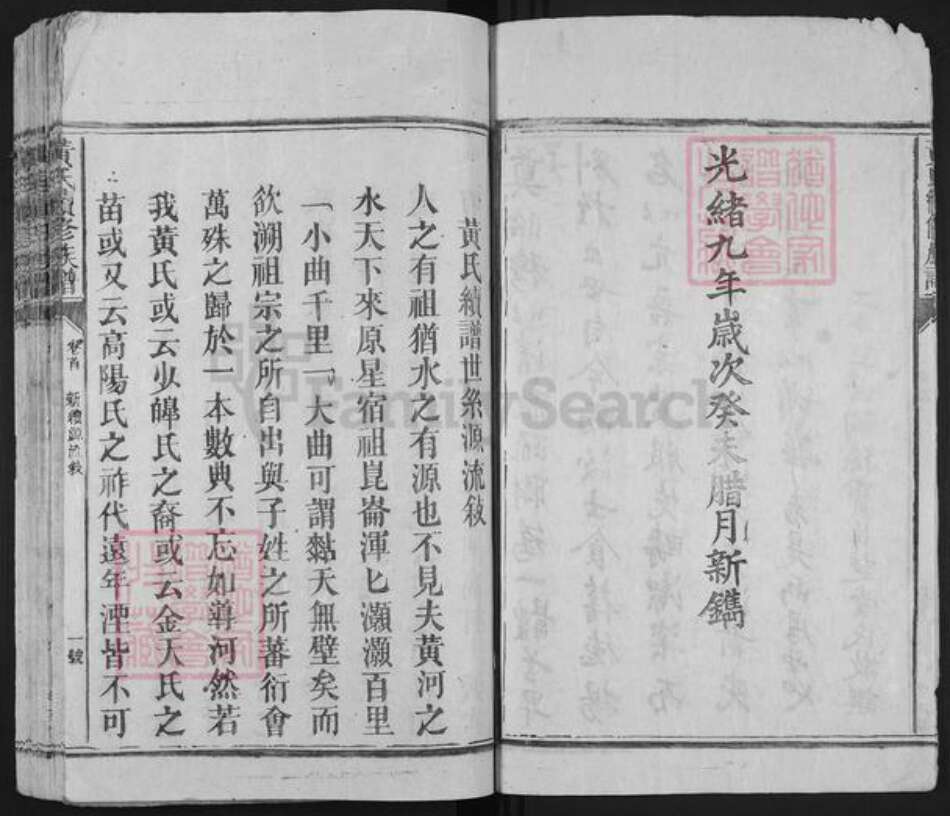 光緒九年歲次癸未腊月新鐫
黃氏續譜世系源流敍
人之有祖猶水之有源也不見夫黃河之
水天下來原星宿祖崑崙渾匕灝灝百里
一小曲千里一大曲可謂黏天無壁矣而
欲溯祖宗之所自出與子姓之所蕃衍會
萬殊之歸於一本數典不忘如導河然若
我黃氏或云少皞氏之裔或云金天氏之
苗或又云高陽氏之祚代遠年湮皆不可
卷首
一號
FamilySearch